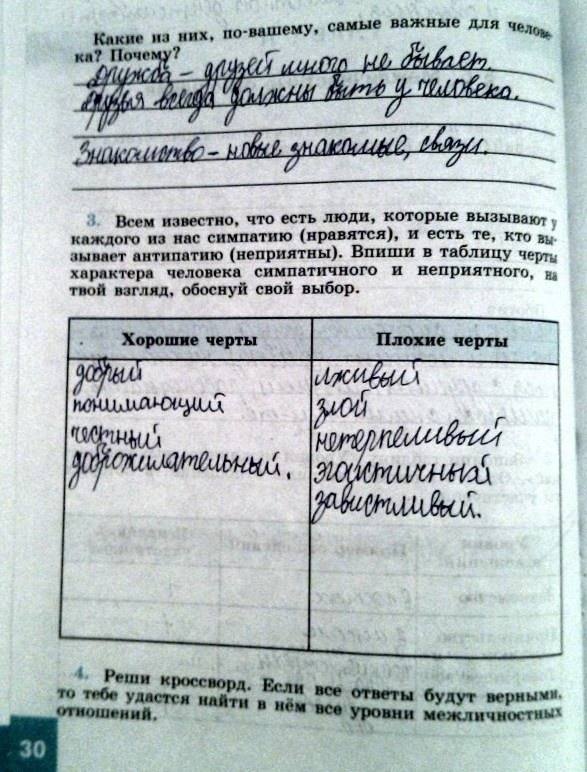 Какие из них, по-вашему, самые важные для челове-
ка? Почему?
Дружба – друзей много не бывает.
Друзья всегда должны быть у человека.
Знакомство – новые знакомые, связи.
3. Всем известно, что есть люди, которые вызывают у
каждого из нас симпатию (нравятся), и есть те, кто вы-
зывает антипатию (неприятны). Впиши в таблицу черты
характера человека симпатичного и неприятного, на
твой взгляд, обоснуй свой выбор.
Хорошие черты
добрый
понимающий
честный
доброжилательный.
Плохие черты
лживый
злой
нетерпеливый
эгоистичный
завистливый.
4. Реши кроссворд. Если все ответы будут верными,
то тебе удастся найти в нём все уровни межличностных
отношений.
30